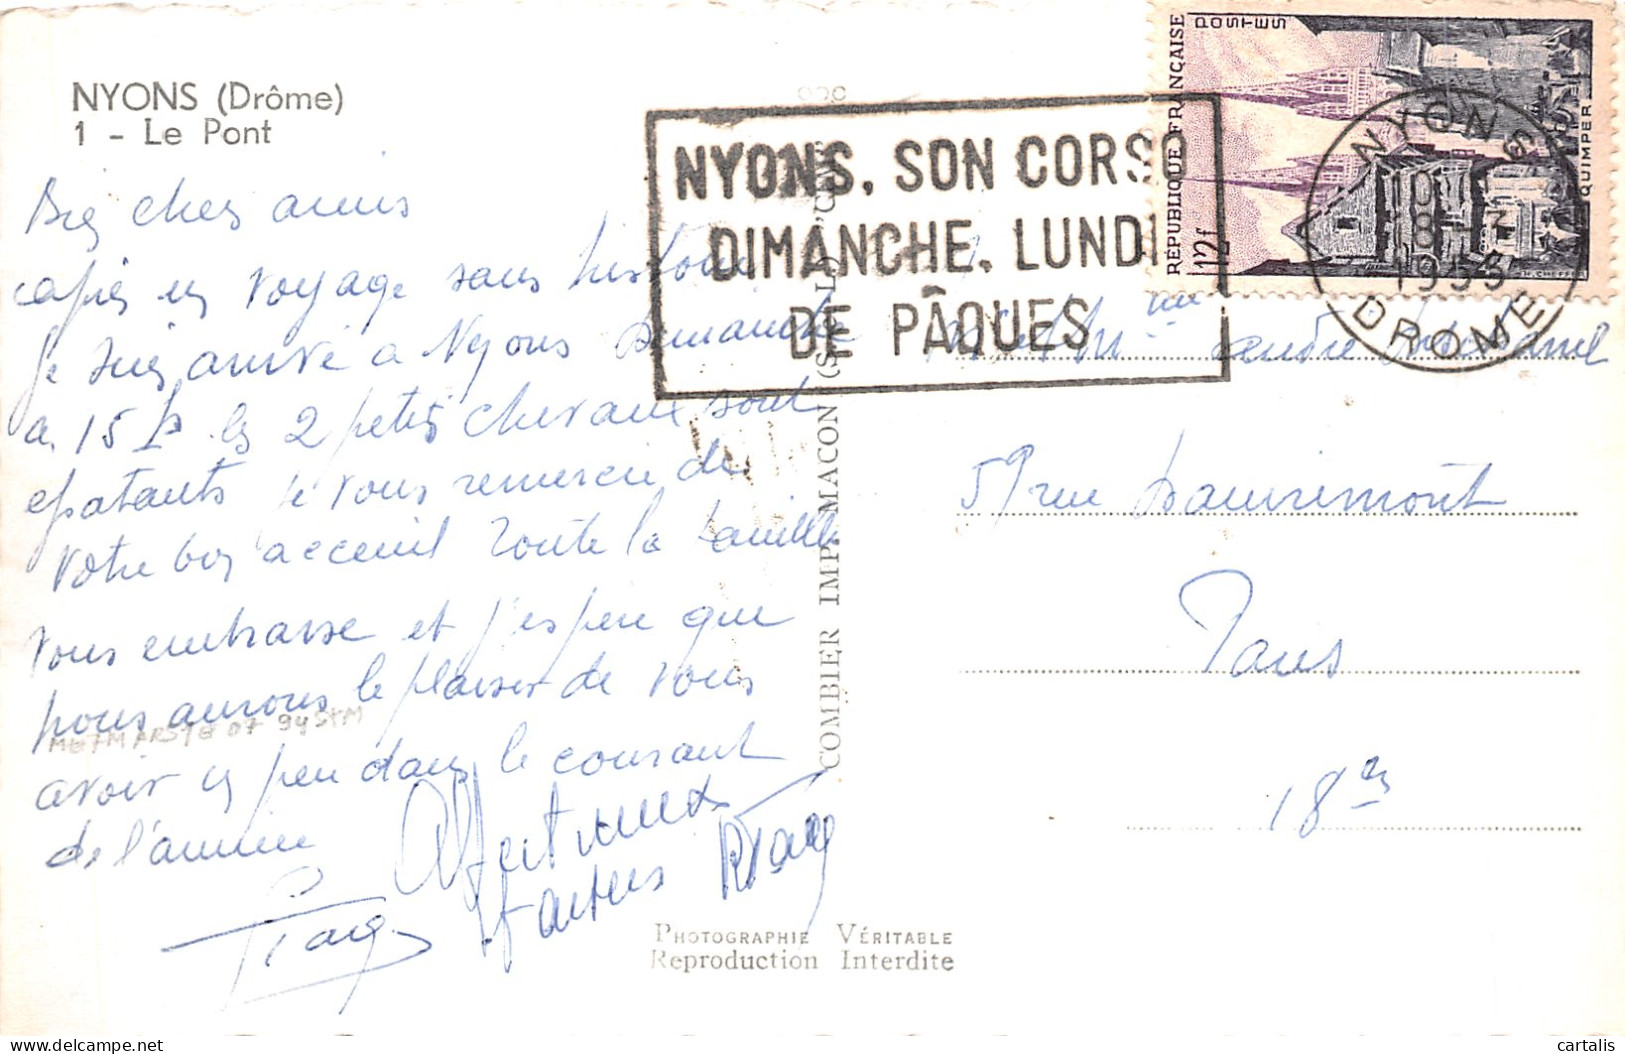 NYONS (Drôme)
1 - Le Pont
Bien chers amis
après un voyage sans histoire
Je suis arrivé à Nyons Dimanche
à 15 h les 2 petits chevaux sont
épatants je vous remercie de
votre bon acceuil Toute la famille
vous embrasse et j'espère que
nous aurons le plaisir de vous
avoir un peu dans le courant
de l'année
Affectueux
NYONS, SON CORSO
DIMANCHE, LUNDI
DE PÂQUES
RÉPUBLIQUE FRANÇAISE
POSTES
12f
QUIMPER
H. CHEFFER
NYONS
1955
DROME
André
59 rue Damrémont
Paris
18
COMBIER IMP. MACON
PHOTOGRAPHIE VÉRITABLE
Reproduction Interdite
cartalis